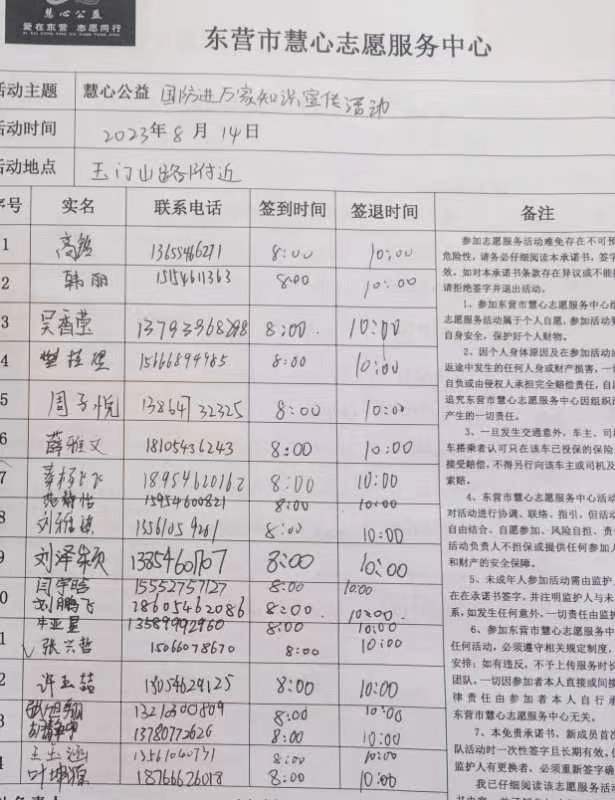 慧心公益
爱在东营 志愿同行
东营市慧心志愿服务中心
活动主题 慧心公益 国防进万家知识宣传活动
活动时间 2023年8月14日
活动地点 玉门山路附近
序号 实名 联系电话 签到时间 签退时间 备注
1 8:00 10:00
2 韩丽 15154611363 8:00 10:00
3 吴香莹 8:00 10:00
4 15666894985 8:00 10:00
5 周子悦 13864732325 8:00 10:00
6 薛雅文 18105436243 8:00 10:00
7 18954620162 8:00 10:00
15954600821 8:00 10:00
8 8:00 10:00
9 刘泽颖 13854601707 8:00 10:00
0 闫宇晗 15552757127 8:00 10:00
刘鹏飞 18605462086 8:00 10:00
牛亚星 13589992960 8:00 10:00
1 张六哲 15066078670 8:00 10:00
2 许玉喆 13054629125 8:00 10:00
3 13210300809 8:00 10:00
13780772626 8:00 10:00
4 13561040731 8:00 10:00
18766626018 8:00 10:00
参加志愿服务活动难免存在不可预
危险性，请务必仔细阅读本承诺书，签字
效。如对本承诺书条款存在异议或不能接
请拒绝签字并退出活动。
1、参加东营市慧心志愿服务中心组
志愿服务活动属于个人自愿，参加活动要
自身安全，保护好个人财物。
2、因个人身体原因及在参加活动或
返途中发生的任何人身或财产损害，一切
自负或由侵权人承担完全赔偿责任，自愿
追究东营市慧心志愿服务中心因组织活
产生的一切责任。
3、一旦发生交通意外，车主、司机
车搭乘者认可只在该车已投保的保险
接受赔偿，不得另行向该车主或司机及
索赔。
4、东营市慧心志愿服务中心活动
对活动进行协调、联络、指引，但活动
自由结合、自愿参加、风险自担、责
活动负责人不担保或提供任何参加人
和财产的安全保障。
5、未成年人参加活动需由监护人
在在承诺书签字，并注明监护人与未
系，如发生任何意外，一切责任由监护
6、参加东营市慧心志愿服务中
任何活动，必须遵守相关规定制度，
安排；如有违反，不予上传服务时长
团队。一切因参加者本人直接或间接
律责任由参加者本人自行承
东营市慧心志愿服务中心无关。
7、本免责承诺书，新成员首次
队活动时一次性签字且长期有效，但
监护人有更换者，必须重新签字确
我已仔细阅读该志愿服务活